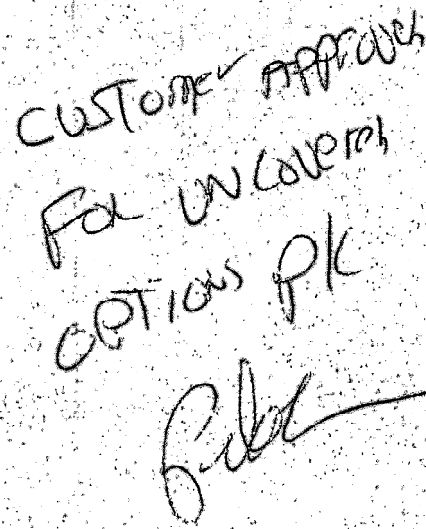 CUSTOMER APPROVED
FOR UNCOVERED
OPTIONS PK